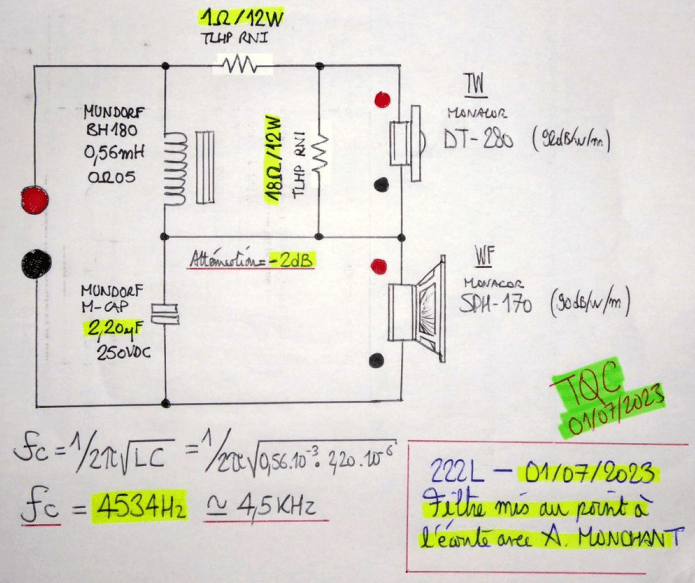 1Ω/12W
TLHP RNI
MUNDORF
BH180
0,56mH
0Ω05
18Ω/12W
TLHP RNI
TW
MONACOR
DT-280 (92dB/w/m)
Atténuation = -2dB
WF
MONACOR
SPH-170 (90dB/w/m)
MUNDORF
M-CAP
2,20µF
250VDC
TQC
01/07/2023
fc = 1/2π√LC = 1/2π√0,56.10⁻³ . 2,20.10⁻⁶
fc = 4534Hz ≃ 4,5KHz
222L - 01/07/2023
Filtre mis au point à
l'écoute avec A. MONCHANT